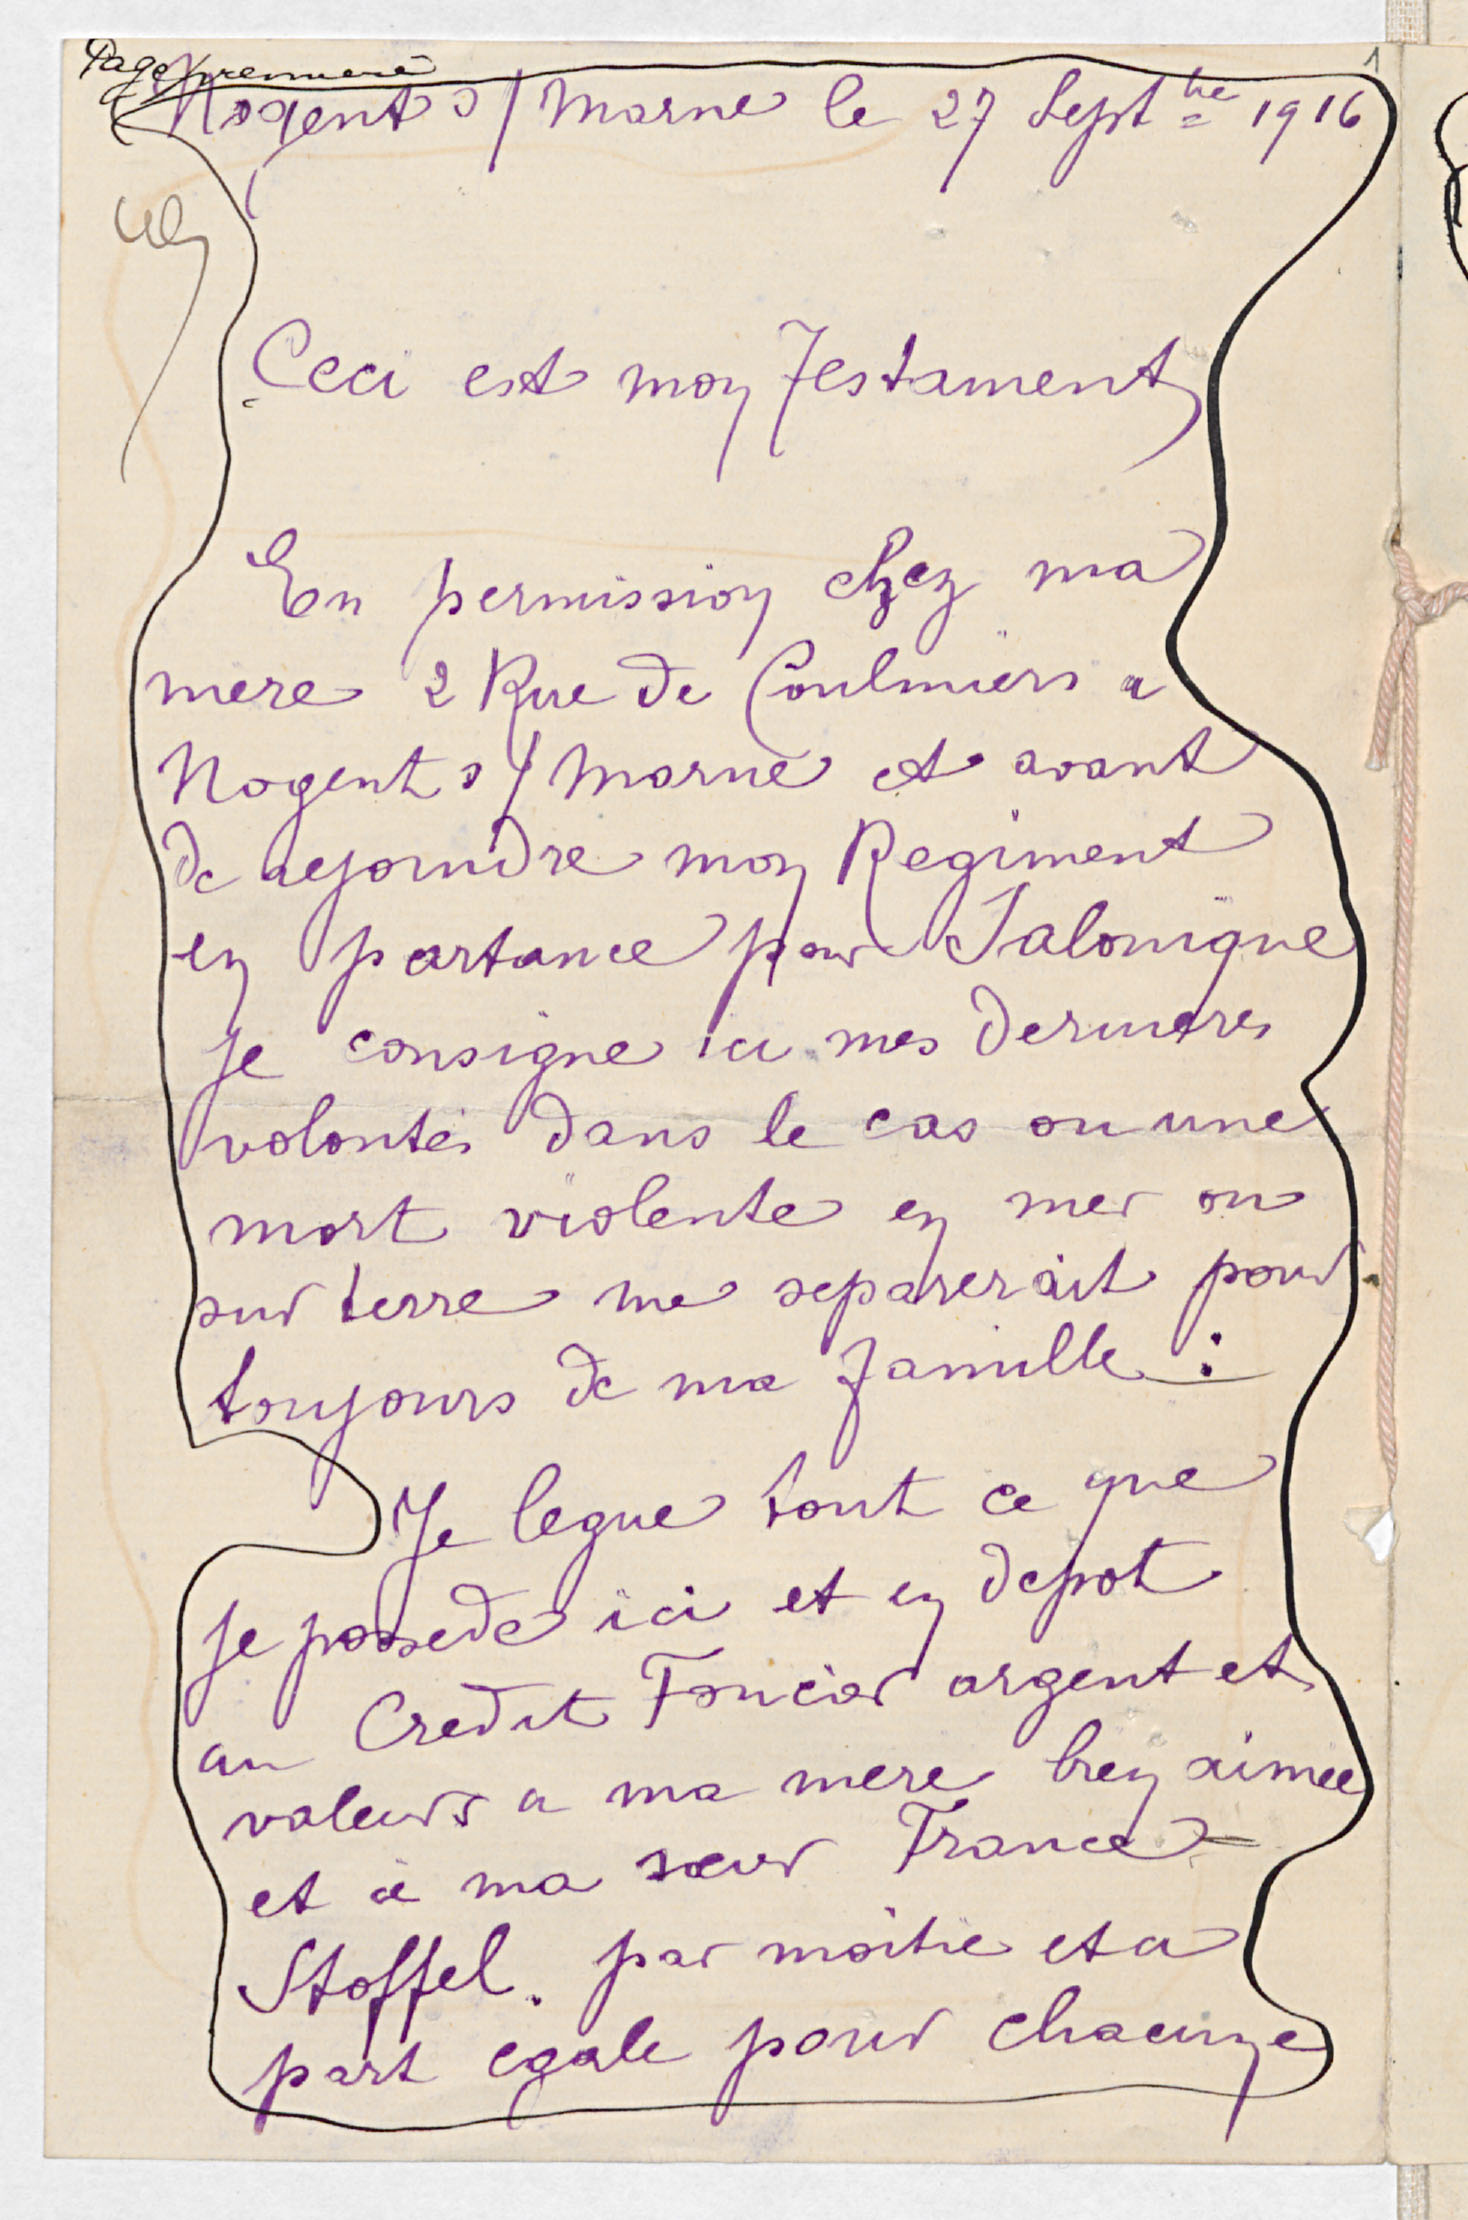 Page première
1
Nogent s/ Marne le 27 Septbre 1916
Ceci est mon Testament
En permission chez ma
mere 2 Rue de Coulmiers a
Nogent s/ Marne et avant
de rejoindre mon Regiment
en partance pour Salonique
je consigne ici mes dernieres
volontés dans le cas ou une
mort violente en mer ou
sur terre me separerait pour
toujours de ma famille :
Je legue tout ce que
je possede ici et en depot
au Credit Foncier argent et
valeurs a ma mere bien aimée
et à ma sœur France
Stoffel. par moitié et a
part egale pour chacune